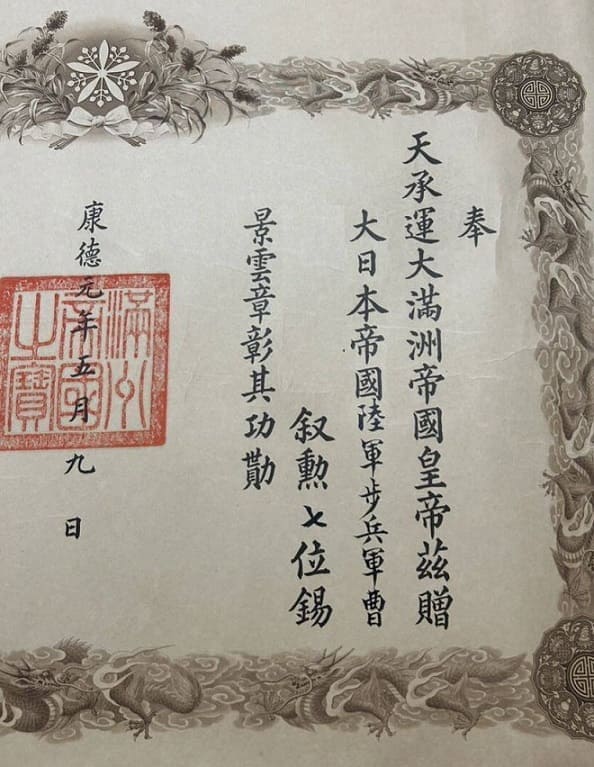 奉
天承運大滿洲帝國皇帝茲贈
大日本帝國陸軍步兵軍曹
敘勲七位錫
景雲章彰其功勩
康德元年五月九日
滿洲
帝國
之寶